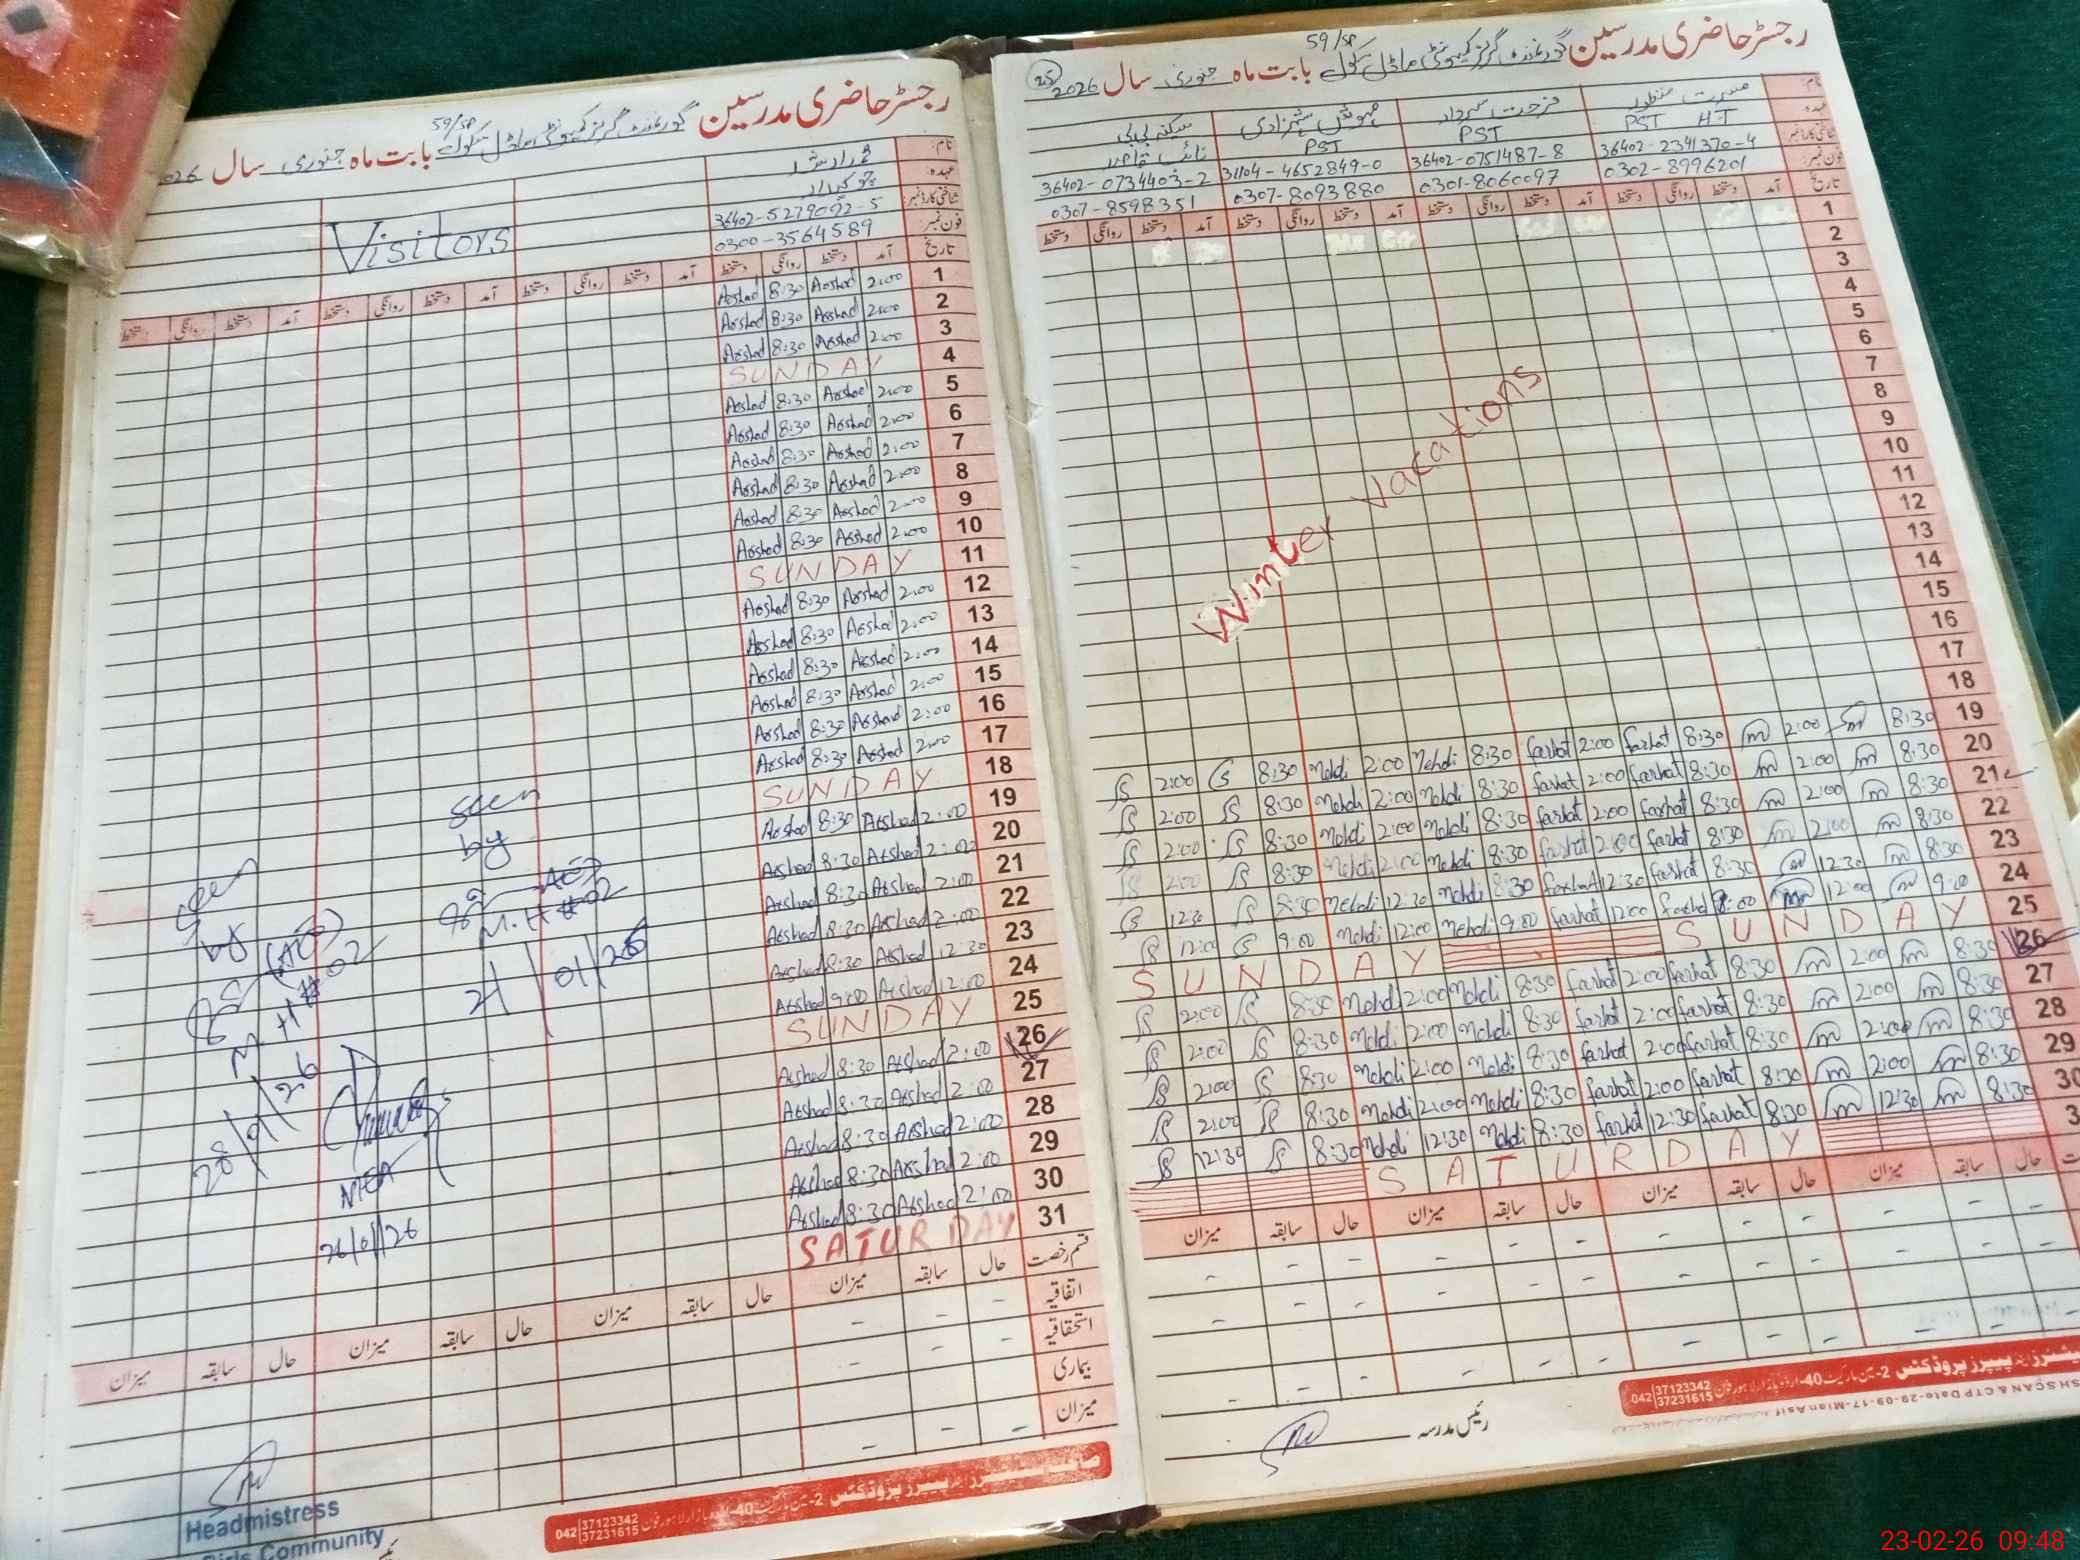 رجسٹر حاضری مدرسین گورنمنٹ گرلز کمیونٹی ماڈل سکول 59/SP بابت ماہ جنوری سال 2026
25
نام:
مسرت منظور
فرحت سردار
مہوش شہزادی
سکینہ بی بی
عہدہ:
PST HT
PST
PST
نائب قاصد
شناختی کارڈ نمبر:
36402-2341370-4
36402-0751487-8
31104-4652849-0
36402-0734403-2
فون نمبر:
0302-8996201
0301-8060097
0307-8093880
0307-8598351
تاریخ آمد دستخط روانگی دستخط آمد دستخط روانگی دستخط آمد دستخط روانگی دستخط آمد دستخط روانگی دستخط
1
2
3
4
5
6
7
8
9
10
11
12
13
14
15
16
17
18
Winter vacations
19 8:30 m 2:00 m 8:30 farhat 2:00 farhat 8:30 Mehdi 2:00 Mehdi 8:30 S 2:00 S
20 8:30 m 2:00 m 8:30 farhat 2:00 farhat 8:30 Mehdi 2:00 Mehdi 8:30 S 2:00 S
21 8:30 m 2:00 m 8:30 farhat 2:00 farhat 8:30 Mehdi 2:00 Mehdi 8:30 S 2:00 S
22 8:30 m 2:00 m 8:30 farhat 2:00 farhat 8:30 Mehdi 2:00 Mehdi 8:30 S 2:00 S
23 8:30 m 12:30 m 8:30 farhat 12:30 farhat 8:30 Mehdi 12:30 Mehdi 8:30 S 12:30 S
24 9:00 m 12:00 m farhat 12:00 farhat 9:00 Mehdi 12:00 Mehdi 9:00 S 12:00 S
25 SUNDAY SUNDAY
26 8:30 m 2:00 m 8:30 farhat 2:00 farhat 8:30 Mehdi 2:00 Mehdi 8:30 S 2:00 S
27 8:30 m 2:00 m 8:30 farhat 2:00 farhat 8:30 Mehdi 2:00 Mehdi 8:30 S 2:00 S
28 8:30 m 2:00 m 8:30 farhat 2:00 farhat 8:30 Mehdi 2:00 Mehdi 8:30 S 2:00 S
29 8:30 m 2:00 m 8:30 farhat 2:00 farhat 8:30 Mehdi 2:00 Mehdi 8:30 S 2:00 S
30 8:30 m 12:30 m 8:30 farhat 12:30 farhat 8:30 Mehdi 12:30 Mehdi 8:30 S 12:30 S
3 SATURDAY
حال سابقہ میزان حال سابقہ میزان حال سابقہ میزان حال سابقہ میزان
رئیس مدرسہ
پیپرز پروڈکٹس 2-مین مارکیٹ 40-اردو بازار لاہور فون 042 37123342 37231615
رجسٹر حاضری مدرسین گورنمنٹ گرلز کمیونٹی ماڈل سکول 59/SP بابت ماہ جنوری سال 026
نام: محمد ارشد
عہدہ: چوکیدار
شناختی کارڈ نمبر: 36402-5279092-5
فون نمبر: 0300-3564589
Visitors
تاریخ آمد دستخط روانگی دستخط آمد دستخط روانگی دستخط آمد دستخط روانگی دستخط
1 2:00 Arshad 8:30 Arshad
2 2:00 Arshad 8:30 Arshad
3 2:00 Arshad 8:30 Arshad
4 SUNDAY
5 2:00 Arshad 8:30 Arshad
6 2:00 Arshad 8:30 Arshad
7 2:00 Arshad 8:30 Arshad
8 2:00 Arshad 8:30 Arshad
9 2:00 Arshad 8:30 Arshad
10 2:00 Arshad 8:30 Arshad
11 SUNDAY
12 2:00 Arshad 8:30 Arshad
13 2:00 Arshad 8:30 Arshad
14 2:00 Arshad 8:30 Arshad
15 2:00 Arshad 8:30 Arshad
16 2:00 Arshad 8:30 Arshad
17 2:00 Arshad 8:30 Arshad
18 SUNDAY
19 2:00 Arshad 8:30 Arshad
20 2:00 Arshad 8:30 Arshad
21 2:00 Arshad 8:30 Arshad
22 2:00 Arshad 8:30 Arshad
23 12:30 Arshad 8:30 Arshad
24 12:00 Arshad 9:00 Arshad
25 SUNDAY
26 2:00 Arshad 8:30 Arshad
27 2:00 Arshad 8:30 Arshad
28 2:00 Arshad 8:30 Arshad
29 2:00 Arshad 8:30 Arshad
30 2:00 Arshad 8:30 Arshad
31 SATURDAY
seen
by
M.H#02
21/01/26
seen
by
(AEO)
M.H#02
28/01/26
MEA
26/01/26
قسم رخصت حال سابقہ میزان حال سابقہ میزان حال سابقہ میزان حال سابقہ میزان
اتفاقیہ
استحقاقیہ
بیماری
میزان
Headmistress
Girls Community
پیپرز پروڈکٹس 2-مین مارکیٹ 40-اردو بازار لاہور فون 042 37123342 37231615
23-02-26 09:48